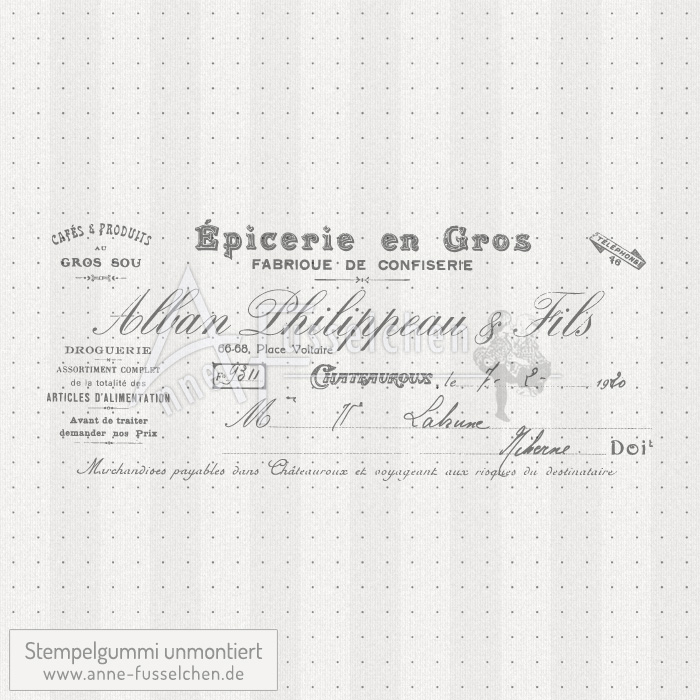 CAFÉS & PRODUITS
AU
GROS SOU
Épicerie en Gros
FABRIQUE DE CONFISERIE
TÉLÉPHONE
46
Alban Philippeau & Fils
DROGUERIE
ASSORTIMENT COMPLET
de la totalité des
ARTICLES D'ALIMENTATION
Avant de traiter
demander nos Prix.
66-68, Place Voltaire
9311
CHATEAUROUX, le 7- 2- 1920
M
Doit
Marchandises payables dans Châteauroux et voyageant aux risques du destinataire
Anne Fusselchen
Stempelgummi unmontiert
www.anne-fusselchen.de